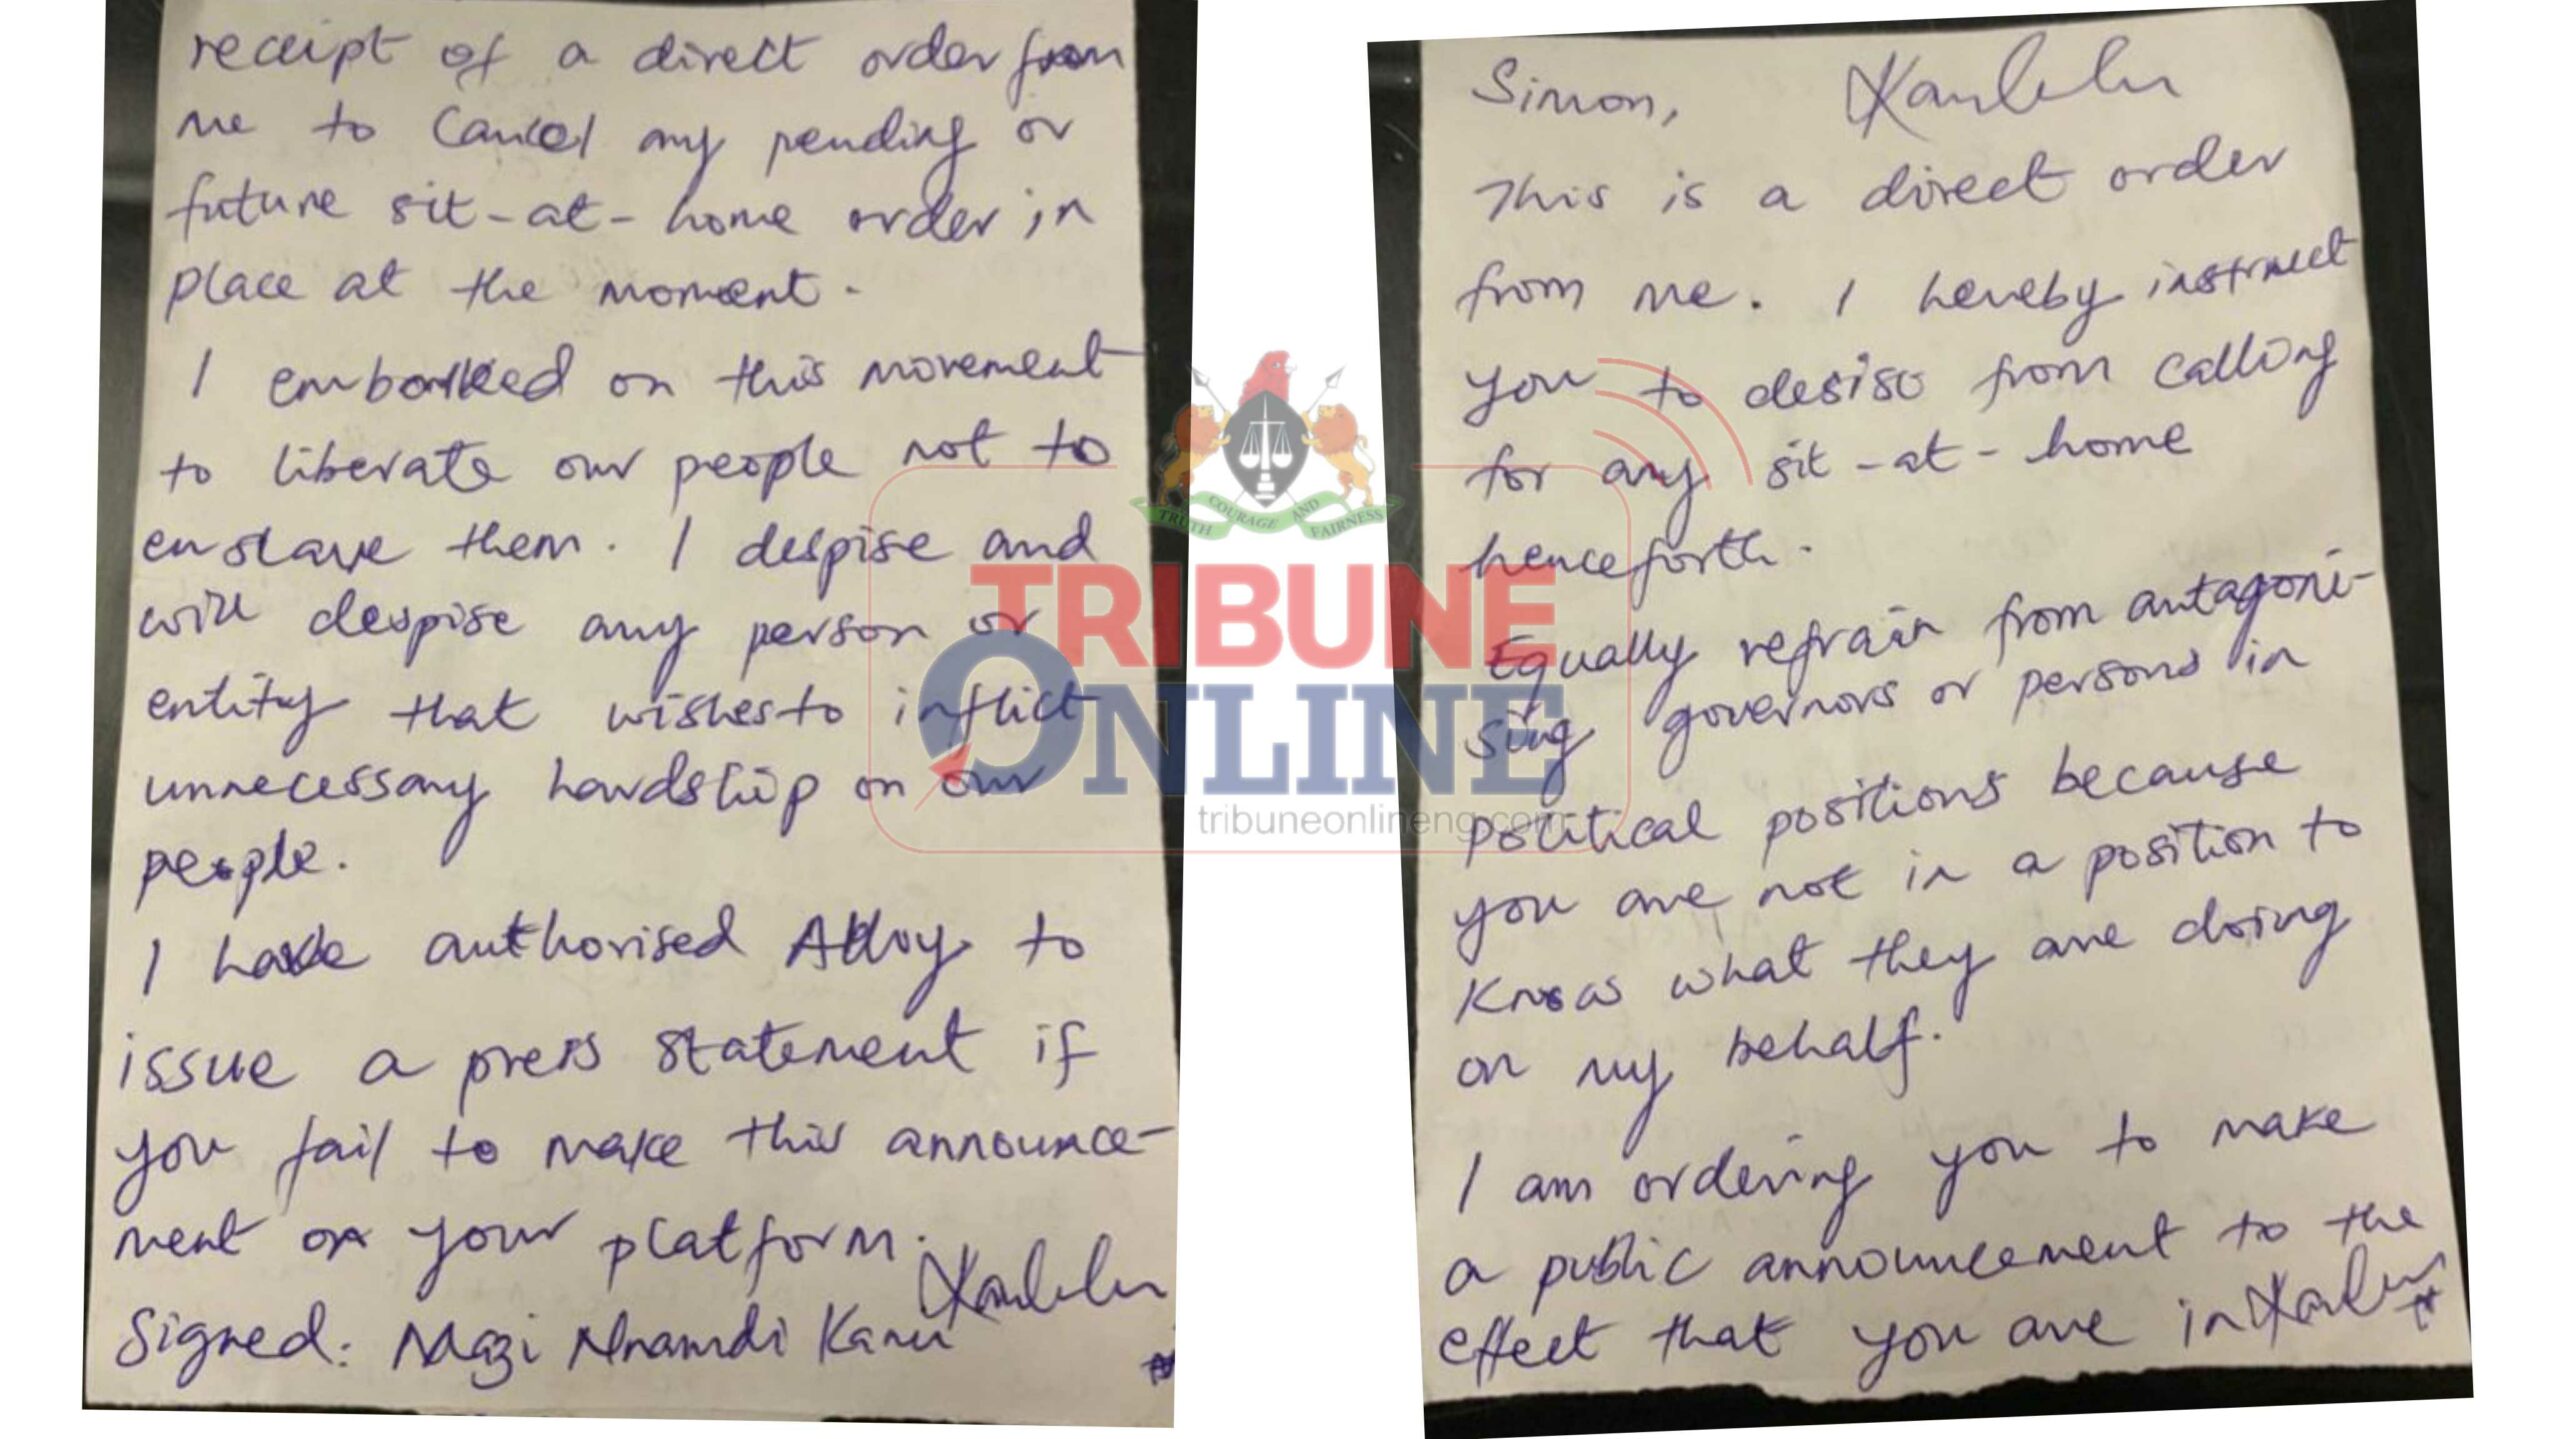 receipt of a direct order from
me to Cancel any pending or
future sit-at-home order in
place at the moment.
I embarked on this movement
to liberate our people not to
enslave them. I despise and
will despise any person or
entity that wishes to inflict
unnecessary hardship on our
people.
I have authorised Alloy to
issue a press statement if
you fail to make this announce-
ment on your platform.
Signed: Mazi Nnamdi Kanu
Simon,
This is a direct order
from me. I hereby instruct
you to desist from calling
for any sit-at-home
henceforth.
Equally refrain from antagoni-
sing governors or persons in
political positions because
you are not in a position to
know what they are doing
on my behalf.
I am ordering you to make
a public announcement to the
effect that you are in
TRUTH COURAGE AND FAIRNESS
TRIBUNE
ONLINE
tribuneonlineng.com